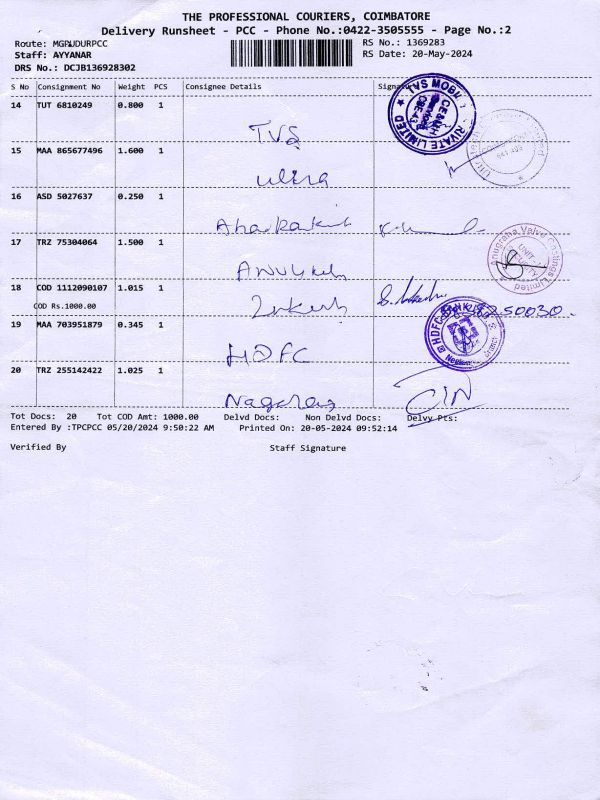 THE PROFESSIONAL COURIERS, COIMBATORE
Delivery Runsheet - PCC - Phone No.:0422-3505555 - Page No.:2
Route: MGPUDURPCC RS No.: 1369283
Staff: AYYANAR RS Date: 20-May-2024
DRS No.: DCJB136928302
S No Consignment No Weight PCS Consignee Details Signature
14 TUT 6810249 0.800 1
TVS
TVS MOBILITY PRIVATE LIMITED
15 MAA 865677496 1.600 1
16 ASD 5027637 0.250 1
17 TRZ 75304064 1.500 1
Anugraha Valve Castings Limited
UNIT-
SECURITY
18 COD 1112090107 1.015 1
COD Rs.1000.00
19 MAA 703951879 0.345 1
HDFC
HDFC BANK
20 TRZ 255142422 1.025 1
Nagaraj
Tot Docs: 20 Tot COD Amt: 1000.00 Delvd Docs: Non Delvd Docs: Delvy Pts:
Entered By :TPCPCC 05/20/2024 9:50:22 AM Printed On: 20-05-2024 09:52:14
Verified By Staff Signature